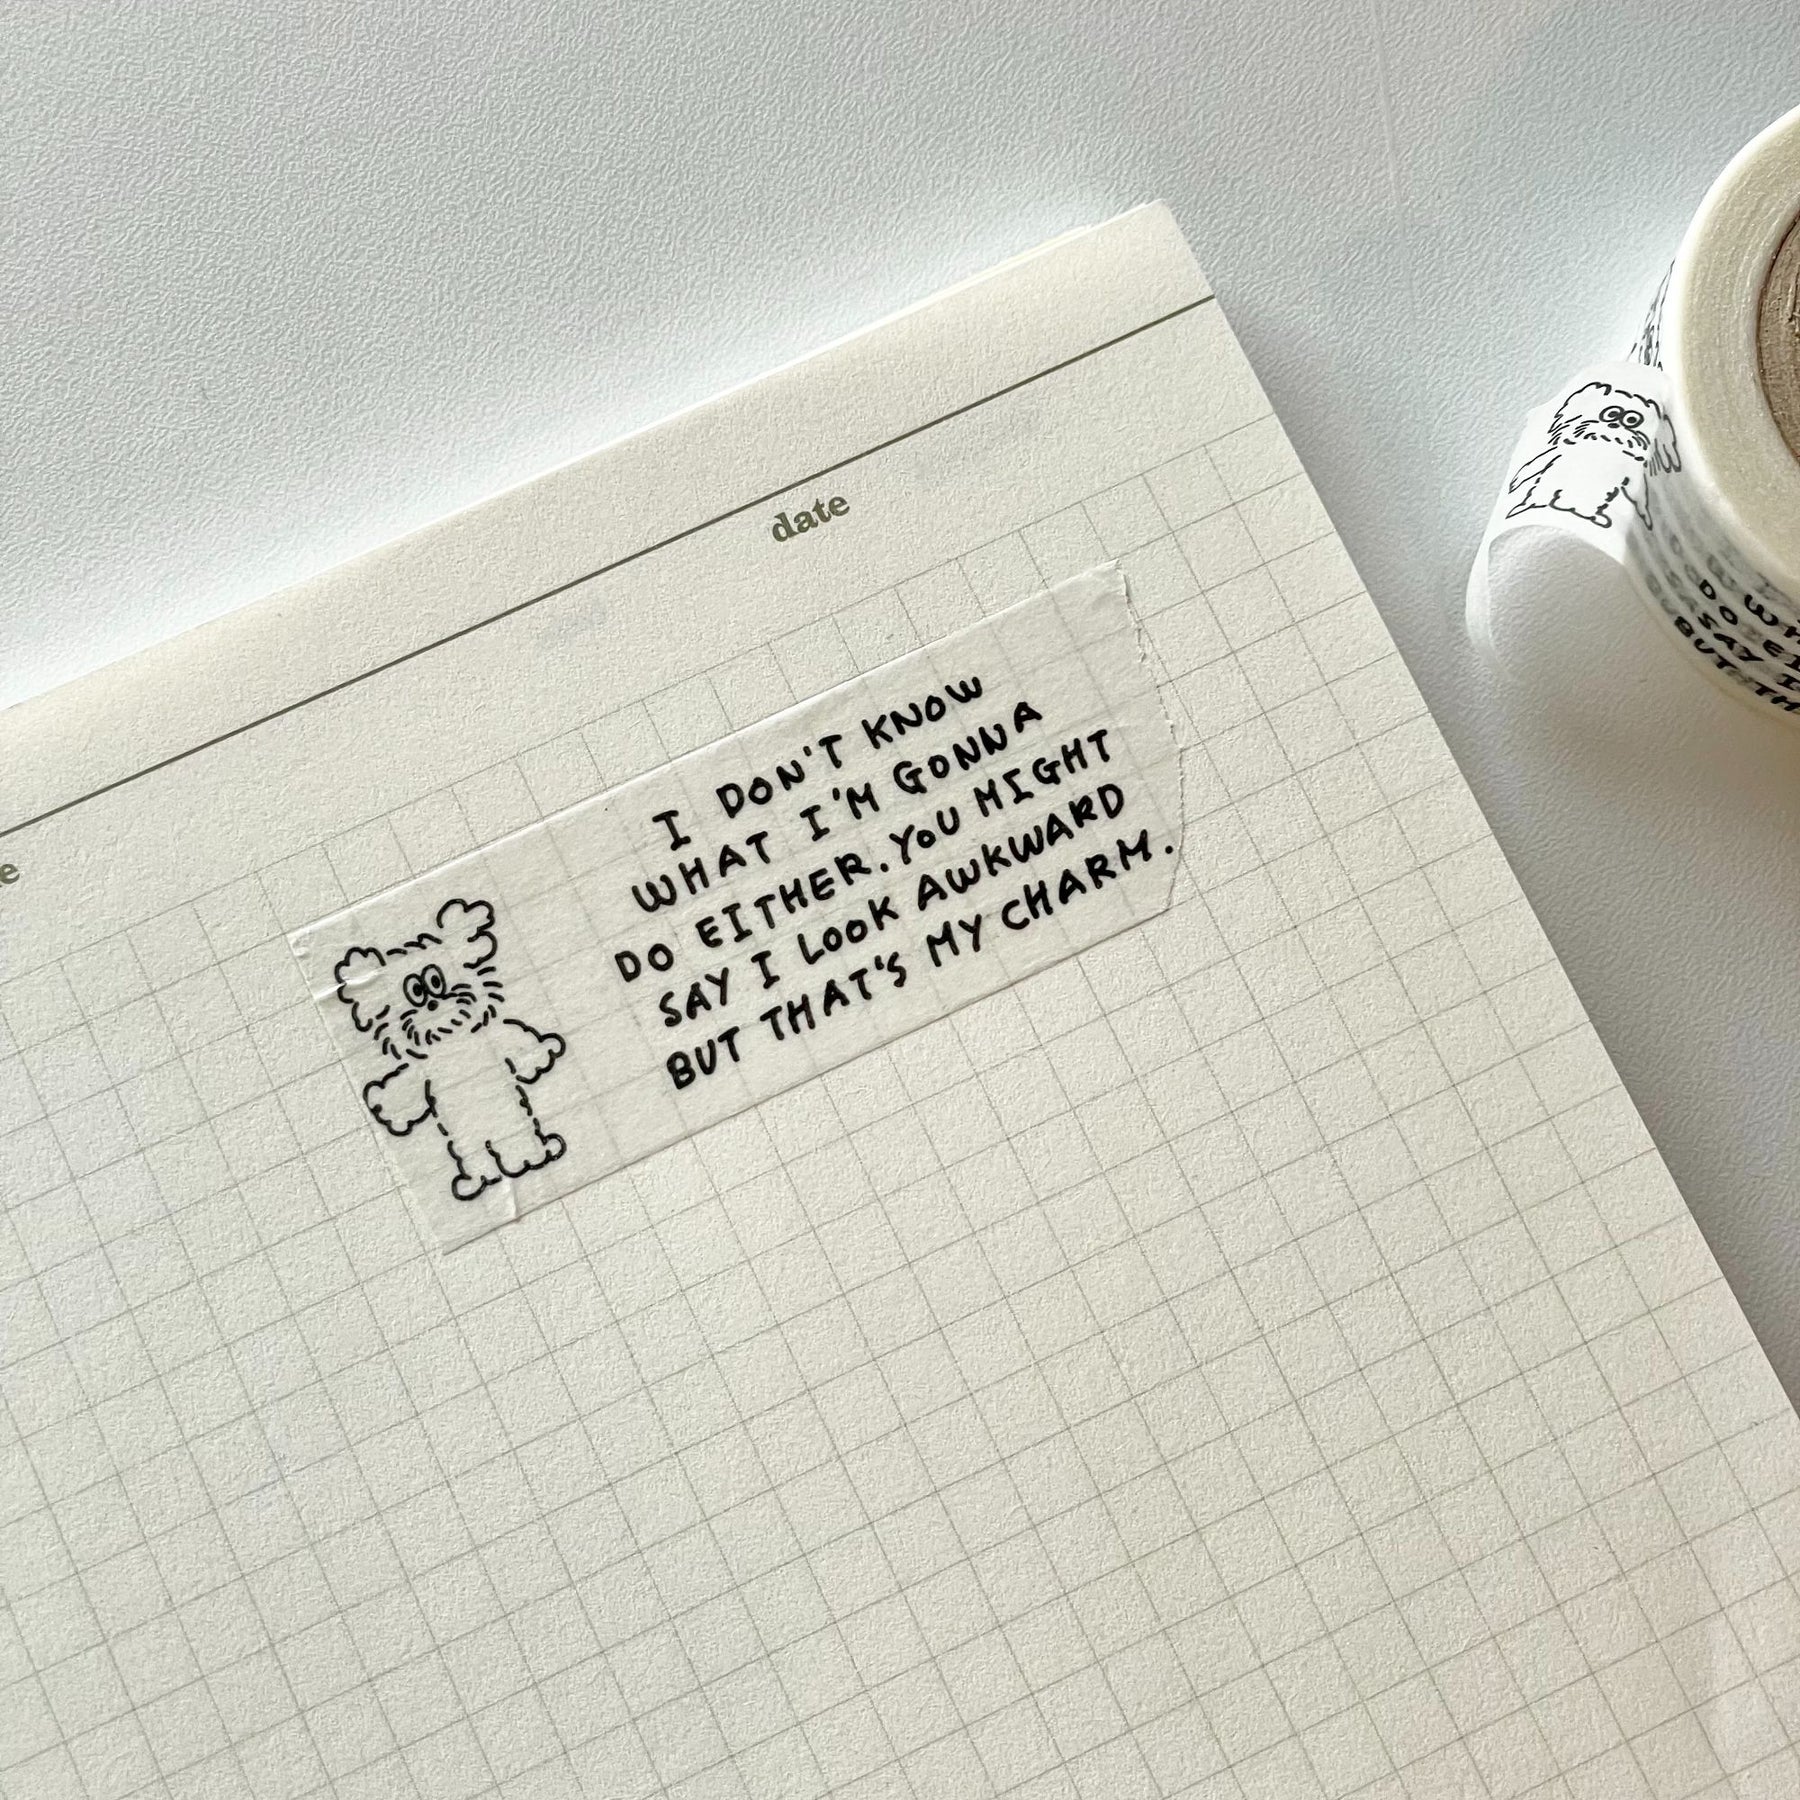 date
I DON'T KNOW
WHAT I'M GONNA
DO EITHER. YOU MIGHT
SAY I LOOK AWKWARD
BUT THAT'S MY CHARM.
DO EI
SAY I
BUT TH